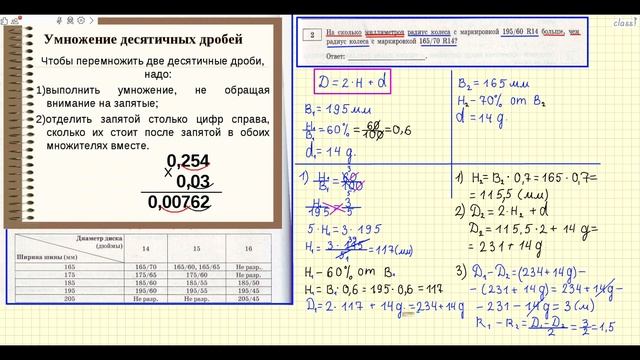 class1
Умножение десятичных дробей
Чтобы перемножить две десятичные дроби, надо:
1)выполнить умножение, не обращая внимание на запятые;
2)отделить запятой столько цифр справа, сколько их стоит после запятой в обоих множителях вместе.
0,254
×
0,03
0,00762
Диаметр диска (дюймы) 14 15 16
Ширина шины (мм)
165 165/70 165/60, 165/65 Не разр.
175 175/65 175/60 Не разр.
185 185/60 185/55 185/50
195 195/60 195/55 195/45
205 Не разр. Не разр. 205/45
2 На сколько миллиметров радиус колеса с маркировкой 195/60 R14 больше, чем
радиус колеса с маркировкой 165/70 R14?
Ответ:
D = 2·H + d
B₁ = 195 мм
H₁/B₁ = 60% = 60/100 = 0,6
d₁ = 14 д.
1) H₁/B₁ = 60/100 3 5
H₁/195 = 3/5
5·H₁ = 3·195
H₁ = 3·195/5 39 1 = 117 (мм)
H₁ – 60% от B₁
H₁ = B₁·0,6 = 195·0,6 = 117
D₁ = 2·117 + 14 д. = 234 + 14 д
B₂ = 165 мм
H₂ – 70% от B₂
d = 14 д.
1) H₂ = B₂·0,7 = 165·0,7 =
= 115,5 (мм)
2) D₂ = 2·H₂ + d
D₂ = 115,5·2 + 14 д =
= 231 + 14 д
3) D₁ – D₂ = (234 + 14 д) –
– (231 + 14 д) = 234 + 14 д –
– 231 – 14 д = 3 (м)
R₁ – R₂ = D₁ – D₂/2 = 3/2 = 1,5